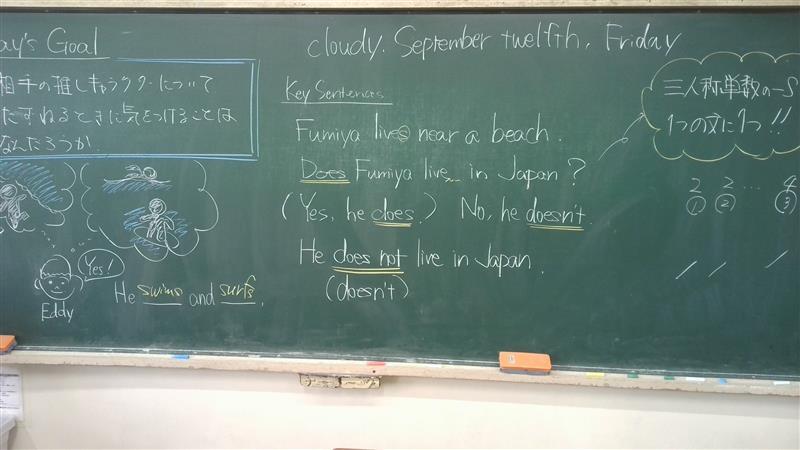 ay's Goal
cloudy. September twelfth, Friday
相手の推しキャラクターについて
たずねるときに気をつけることは
なんだろうか.
Key Sentences
Fumiya lives near a beach.
Does Fumiya live in Japan?
(Yes, he does.) No, he doesn't.
He does not live in Japan.
(doesn't)
三人称単数の-S
1つの文に1つ!!
2 2 … 4
① ② ③
Yes!
Eddy
He swims and surfs.